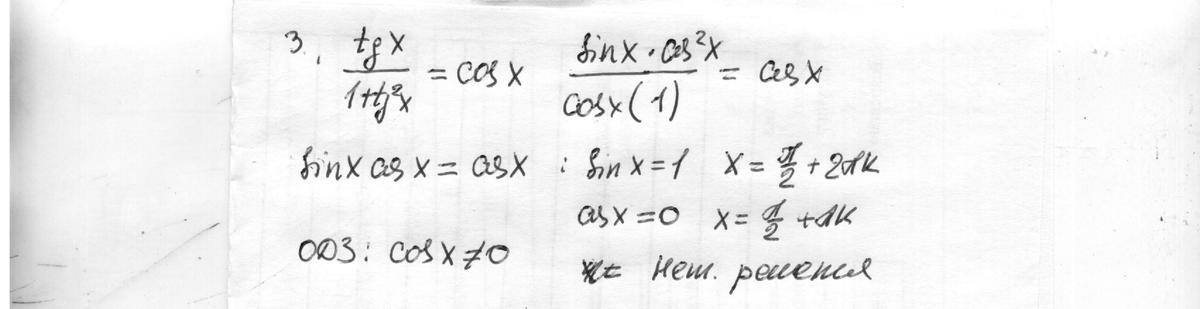 3. tg x / 1+tg²x = cos x   sin x · cos²x / cos x (1) = cos x
sin x cos x = cos x : sin x = 1   x = π/2 + 2πk
cos x = 0   x = π/2 + πk
ОДЗ: cos x ≠ 0   Нет. решения